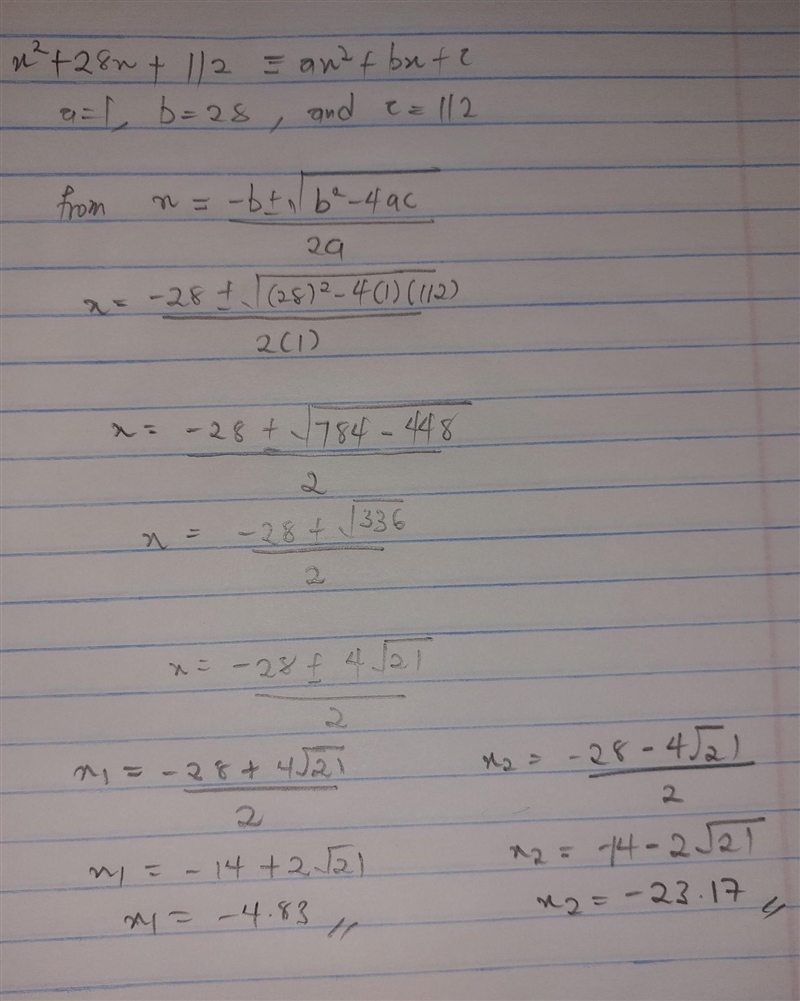 x² + 28x + 112 ≡ ax² + bx + c
a=1, b=28, and c=112
from x = -b±√(b²-4ac)
2a
x = -28 ± √((28)²-4(1)(112))
2(1)
x = -28 ± √(784-448)
2
x = -28 ± √336
2
x = -28 ± 4√21
2
x₁ = -28 + 4√21
2
x₂ = -28 - 4√21
2
x₁ = -14 + 2√21
x₂ = -14 - 2√21
x₁ = -4.83 //
x₂ = -23.17 //